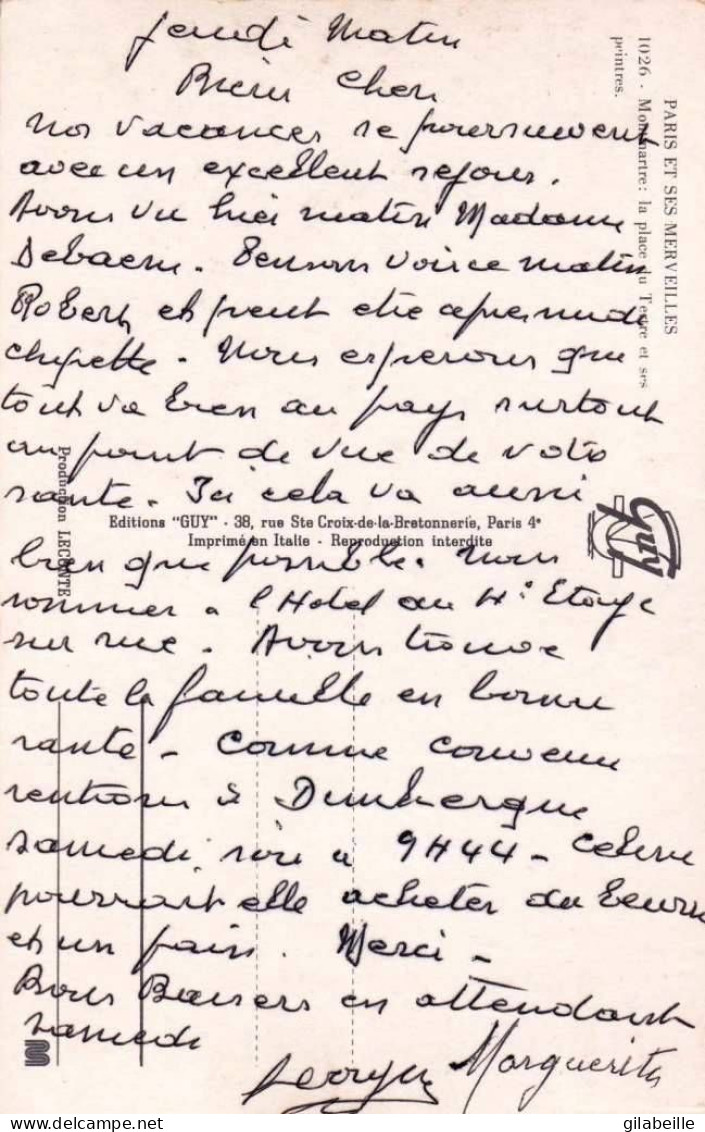 Jeudi Matin
Bien Cher
Nos vacances se poursuivent
avec un excellent séjour.
Avons vu hier matin Madame
Debaem. Pensons voir ce matin
Robert et peut etre apres midi
Nous esperons que
tout va bien au pays surtout
au point de vue de votre
santé. Ici cela va aussi
bien que possible. Nous
sommes a l'Hotel au 4e Etage
sur rue. Avons trouvé
toute la famille en bonne
santé - Comme convenu
rentrons à Dunkerque
samedi soir a 9H44 -
pourrait elle acheter du beurre
et un pain. Merci -
Bons Baisers en attendant
samedi
Georges Marguerite
PARIS ET SES MERVEILLES
1026 - Montmartre: la place du Tertre et ses
peintres.
Production LECONTE
Editions "GUY" - 38, rue Ste Croix-de-la-Bretonnerie, Paris 4e
Imprimé en Italie - Reproduction interdite
Guy
© gilabeille